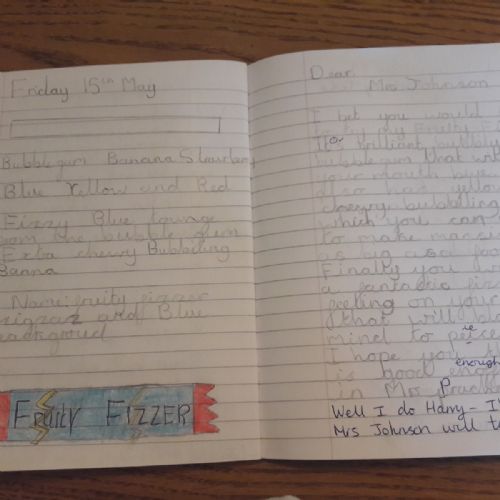 Friday 15th May
Bubblegum Banana Strawberry
Blue Yellow and Red
Fizzy Blue tounge
from the bubble gum
Extra chewy Bubbiling
Banna
Name: fruity fizzer
zigzaz and Blue
background
Fruity FIZZER
Dear
Mrs Johnson
I bet you would
to try my fruity
It's brilliant bubbly
bubblegum that will
your mouth blue
also has yellow
chewy bubbiling
which you can
to make massive
as big as a foo
Finally you
a fantastic fiz
feeling on your
that will blo
mind to peices
ie
I hope you
is good enough
enough
in Mrs
Well I do Harry - I'
Mrs Johnson will t